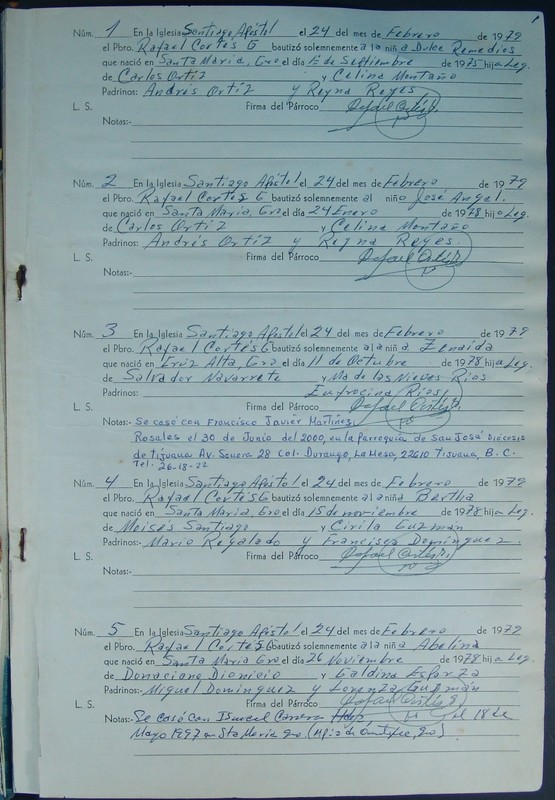 1
Núm. 1 En la Iglesia Santiago Apóstol el 24 del mes de Febrero de 1979
el Pbro. Rafael Cortés G bautizó solemnemente a la niña Dulce Remedios
que nació en Santa María, Gro el día 1º de Septiembre de 1975 hija Leg.
de Carlos Ortiz y Celina Montaño
Padrinos: Andrés Ortiz y Reyna Reyes
L. S. Firma del Párroco Rafael Cortés G.
Notas:-
Núm. 2 En la Iglesia Santiago Apóstol el 24 del mes de Febrero de 1979
el Pbro. Rafael Cortés G bautizó solemnemente al niño José Angel.
que nació en Santa María, Gro el día 24 Enero de 1978 hijo Leg.
de Carlos Ortiz y Celina Montaño
Padrinos: Andrés Ortiz y Reyna Reyes.
L. S. Firma del Párroco Rafael Cortés G.
Notas:-
Núm. 3 En la Iglesia Santiago Apóstol el 24 del mes de Febrero de 1979
el Pbro. Rafael Cortés G bautizó solemnemente a la niña Zenaida
que nació en Cruz Alta, Gro el día 11 de Octubre de 1978 hija Leg.
de Salvador Navarrete y Ma de las Nieves Rios
Padrinos: Eufrocina Rios
L. S. Firma del Párroco Rafael Cortés G.
Notas:- Se casó con Francisco Javier Martínez
Rosales el 30 de Junio del 2000, en la parroquia de San José Diócesis
de Tijuana Av. 28 col. Durango, La Mesa, 22610 Tijuana, B.C.
Tel. 26-18-22
Núm. 4 En la Iglesia Santiago Apóstol el 24 del mes de Febrero de 1979
el Pbro. Rafael Cortés G bautizó solemnemente a la niña Bertha
que nació en Santa María, Gro el día 15 de noviembre de 1978 hija Leg.
de Moisés Santiago y Cirila Guzmán
Padrinos:- Mario Regalado y Francisca Domínguez.
L. S. Firma del Párroco Rafael Cortés G.
Notas:-
Núm. 5 En la Iglesia Santiago Apóstol el 24 del mes de Febrero de 1979
el Pbro. Rafael Cortés G bautizó solemnemente a la niña Abelina
que nació en Santa María Gro el día 26 Noviembre de 1978 hija Leg.
de Donaciano Dionicio y Galdina Esparza
Padrinos:- Miguel Domínguez y Lorenza Guzmán
L. S. Firma del Párroco Rafael Cortés G.
Notas:- Se Casó Con Ismael Carrera el 18 de
Mayo 1997 en Sta María Gro.